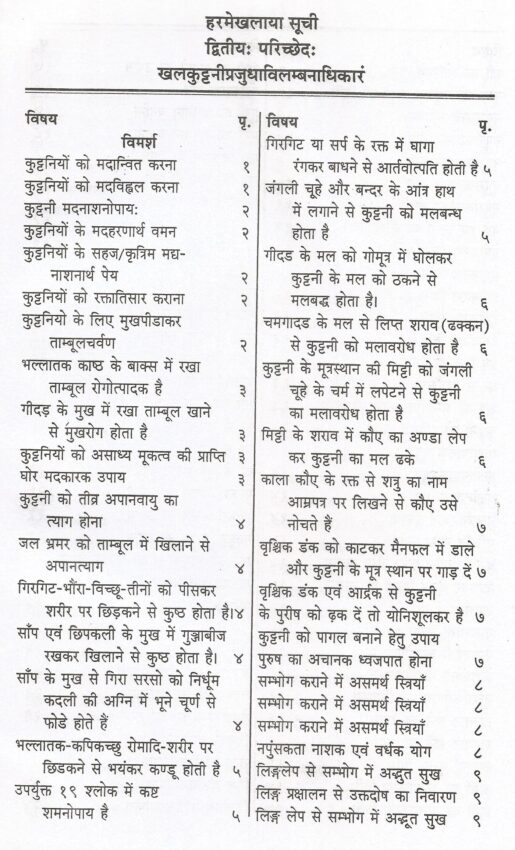 हरमेखलाया सूची
द्वितीयः परिच्छेदः
खलकुट्टनीप्रजुधाविलम्बनाधिकारं
विषय पृ.
विमर्श
कुट्टनियों को मदान्वित करना १
कुट्टनियों को मदविह्वल करना १
कुट्टनी मदनाशनोपायः २
कुट्टनियों के मदहरणार्थ वमन २
कुट्टनियों के सहज/कृत्रिम मद्य-
नाशनार्थ पेय २
कुट्टनियों को रक्तातिसार कराना २
कुट्टनियो के लिए मुखपीडाकर
ताम्बूलचर्वण २
भल्लातक काष्ठ के बाक्स में रखा
ताम्बूल रोगोत्पादक है ३
गीदड़ के मुख में रखा ताम्बूल खाने
से मुखरोग होता है ३
कुट्टनियों को असाध्य मूकत्व की प्राप्ति ३
घोर मदकारक उपाय ३
कुट्टनी को तीव्र अपानवायु का
त्याग होना ४
जल भ्रमर को ताम्बूल में खिलाने से
अपानत्याग ४
गिरगिट-भौंरा-विच्छू-तीनों को पीसकर
शरीर पर छिड़कने से कुष्ठ होता है।४
साँप एवं छिपकली के मुख में गुञ्जाबीज
रखकर खिलाने से कुष्ठ होता है। ४
साँप के मुख से गिरा सरसो को निर्धूम
कदली की अग्नि में भूने चूर्ण से
फोडे होते हैं ४
भल्लातक-कपिकच्छु रोमादि-शरीर पर
छिडकने से भयंकर कण्डू होती है ५
उपर्युक्त १९ श्लोक में कष्ट
शमनोपाय है ५
विषय पृ.
गिरगिट या सर्प के रक्त में धागा
रंगकर बाधने से आर्तवोत्पति होती है ५
जंगली चूहे और बन्दर के आंत्र हाथ
में लगाने से कुट्टनी को मलबन्ध
होता है ५
गीदड के मल को गोमूत्र में घोलकर
कुट्टनी के मल को ठकने से
मलबद्ध होता है। ६
चमगादड के मल से लिप्त शराव (ढक्कन)
से कुट्टनी को मलावरोध होता है ६
कुट्टनी के मूत्रस्थान की मिट्टी को जंगली
चूहे के चर्म में लपेटने से कुट्टनी
का मलावरोध होता है ६
मिट्टी के शराव में कौए का अण्डा लेप
कर कुट्टनी का मल ढके ६
काला कौए के रक्त से शत्रु का नाम
आम्रपत्र पर लिखने से कौए उसे
नोचते हैं ७
वृश्चिक डंक को काटकर मैनफल में डाले
और कुट्टनी के मूत्र स्थान पर गाड़ दें ७
वृश्चिक डंक एवं आर्द्रक से कुट्टनी
के पुरीष को ढ़क दें तो योनिशूलकर है ७
कुट्टनी को पागल बनाने हेतु उपाय
पुरुष का अचानक ध्वजपात होना ७
सम्भोग कराने में असमर्थ स्त्रियाँ ८
सम्भोग कराने में असमर्थ स्त्रियाँ ८
सम्भोग कराने में असमर्थ स्त्रियाँ ८
नपुंसकता नाशक एवं वर्धक योग ८
लिङ्गलेप से सम्भोग में अद्भुत सुख ९
लिङ्ग प्रक्षालन से उक्तदोष का निवारण ९
लिङ्ग लेप से सम्भोग में अद्भूत सुख ९